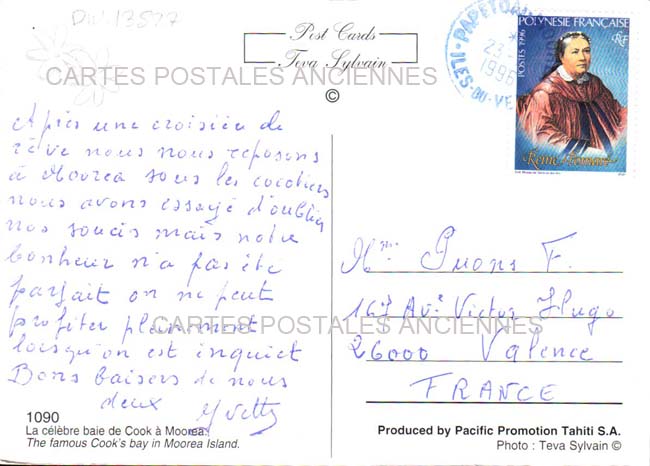 DIV-13577
Post Cards
Teva Sylvain
©
CARTES POSTALES ANCIENNES
POLYNESIE FRANÇAISE
POSTES 1996
RF
Reine Pomare
PAPETOAI
23
1996
ILES-DU-VE
Après une croisière de
rêve nous nous reposons
à Moorea sous les cocotiers
nous avons essayé d'oublier
nos soucis mais notre
bonheur n'a pas été
parfait on ne peut
profiter pleinement
lorsqu'on est inquiet
Bons baisers de nous
deux Yvette
Mme Puons F.
167 Ave Victor Hugo
26000 Valence
FRANCE
CARTES POSTALES ANCIENNES
1090
La célèbre baie de Cook à Moorea.
The famous Cook's bay in Moorea Island.
Produced by Pacific Promotion Tahiti S.A.
Photo : Teva Sylvain ©